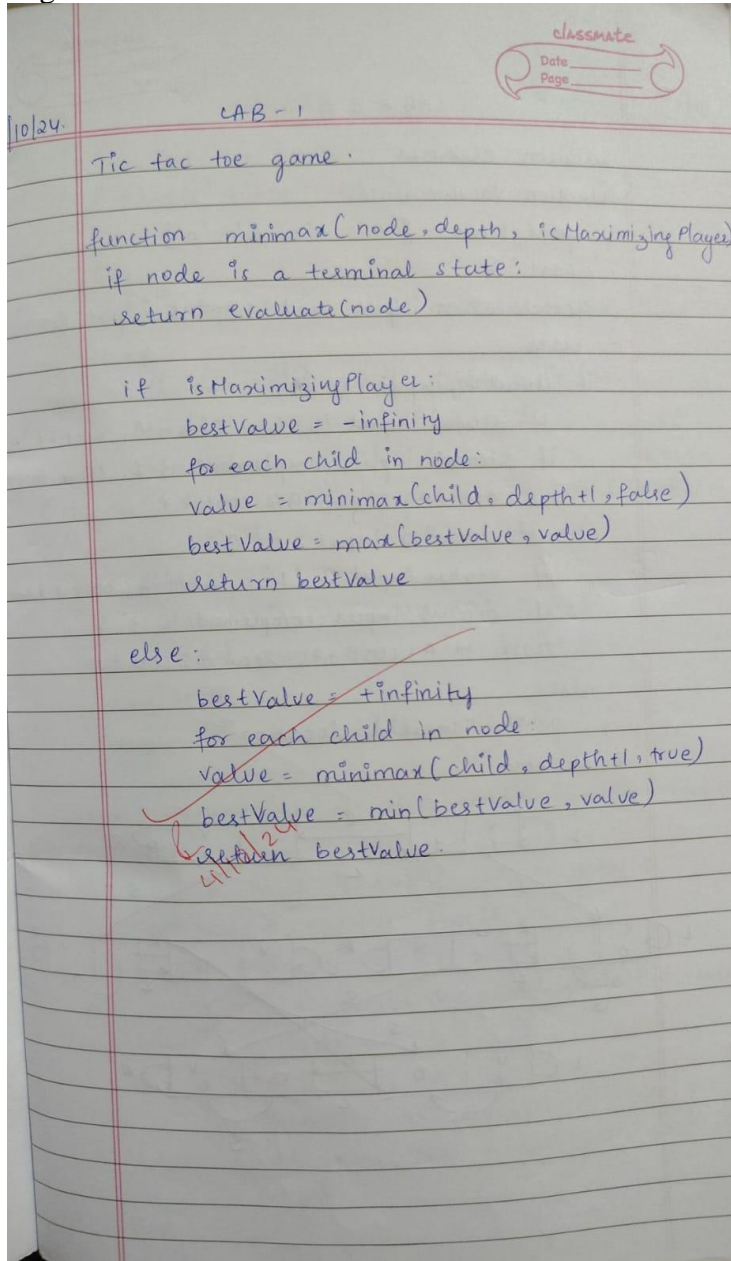 classmate
Date
Page
/10/24.
LAB - 1
Tic tac toe game.
function minimax(node, depth, isMaximizingPlayer)
if node is a terminal state:
return evaluate(node)
if isMaximizingPlayer:
bestValue = -infinity
for each child in node:
value = minimax(child, depth+1, false)
bestValue = max(bestValue, value)
return bestValue
else:
bestValue = +infinity
for each child in node:
value = minimax(child, depth+1, true)
bestValue = min(bestValue, value)
return bestValue.